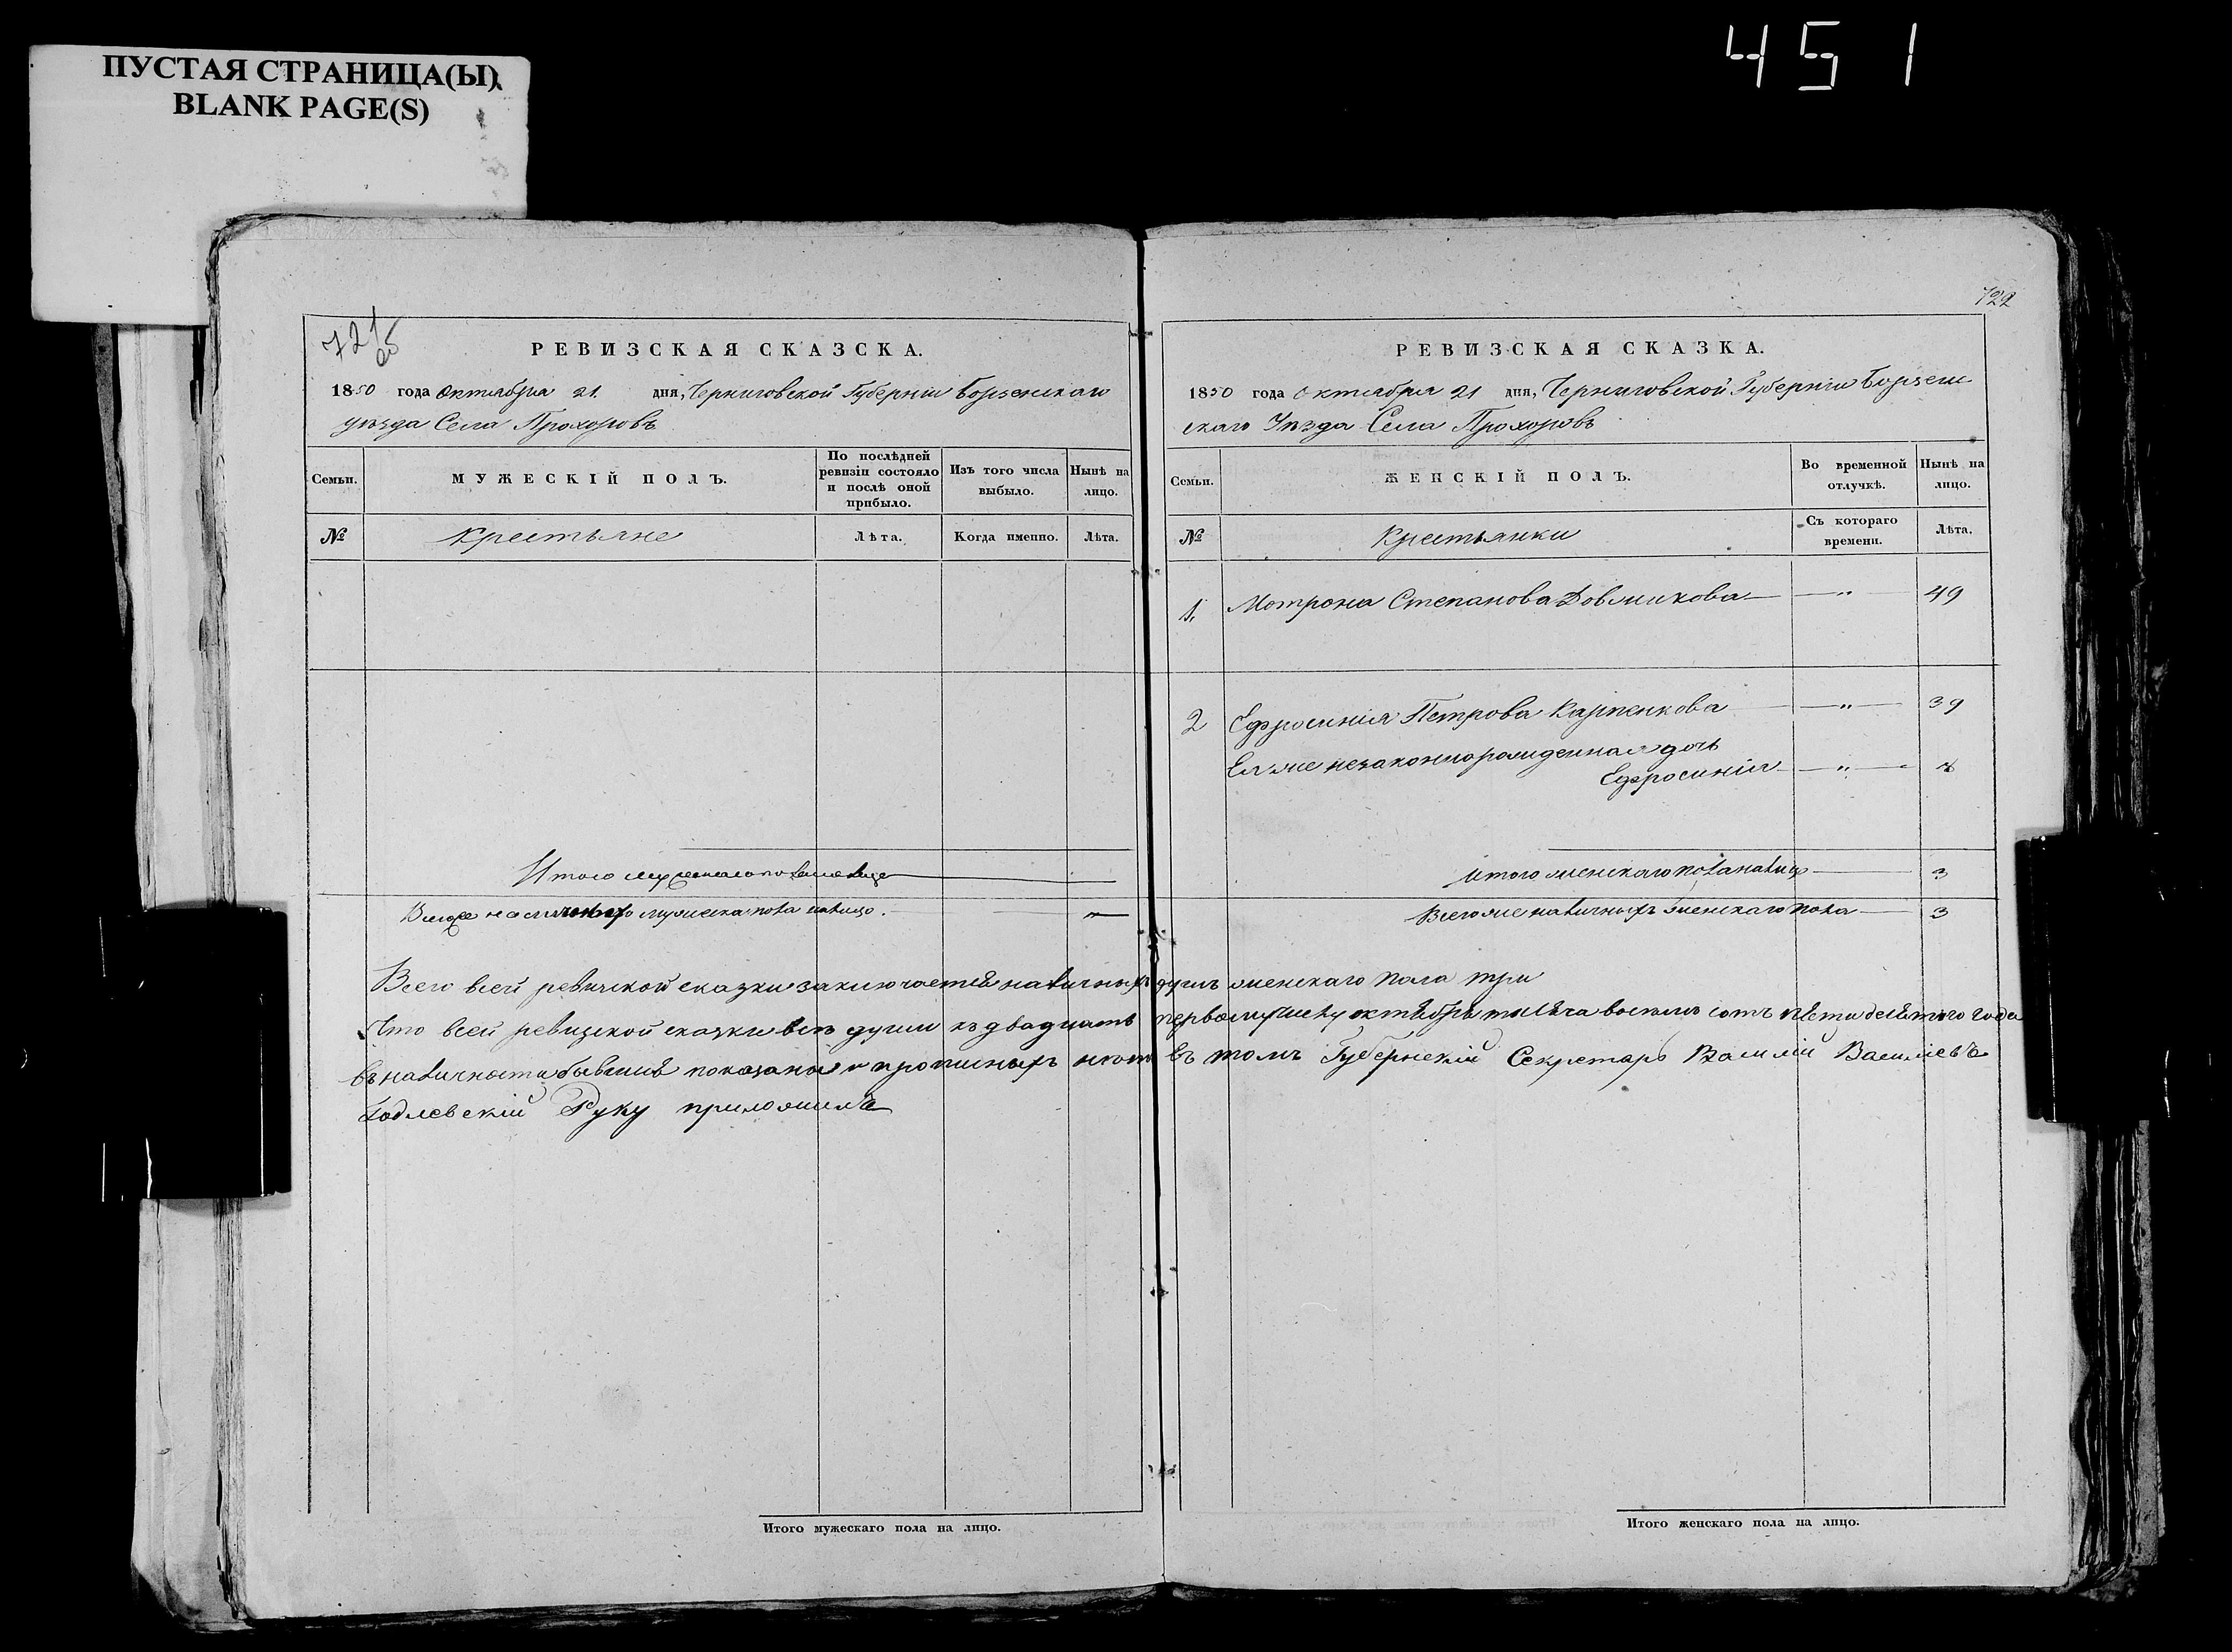 451
ПУСТАЯ СТРАНИЦА(Ы)
BLANK PAGE(S)
721
РЕВИЗСКАЯ СКАЗСКА.
1850 года Октября 21 дня, Черниговской Губерніи Борзенскаго
уѣзда Села Прохоровъ
Семьи.
МУЖЕСКІЙ ПОЛЪ.
По послѣдней ревизіи состояло и послѣ оной прибыло.
Изъ того числа выбыло.
Нынѣ на лицо.
№
Крестьяне
Лѣта.
Когда именно.
Лѣта.
Итого мужескаго пола на лицо
Всего наличныхъ мужеска пола налицо.
Всего всей ревизской сказки заключается наличныхъ
Что всей ревизской сказки всѣ души къ двадцать
въ наличности бывшія показаны и прописныхъ нѣт
Годлевскій Руку приложилъ
Итого мужескаго пола на лицо.
722
РЕВИЗСКАЯ СКАЗКА.
1850 года Октября 21 дня, Черниговской Губерніи Борзен
скаго Уѣзда Села Прохоровъ
Семьи.
ЖЕНСКІЙ ПОЛЪ.
Во временной отлучкѣ.
Нынѣ на лицо.
№
Крестьянки
Съ котораго времени.
Лѣта.
1. Мотрона Степанова Довжикова — " — 49
2 Ефросинія Петрова Карпенкова — " — 39
Ея же незаконнорожденная дочь
Ефросинія — " —
Итого женскаго пола налицо — 3
Всего же наличныхъ женскаго пола — 3
душъ женскаго пола три
первому числу октября тысяча восемь сотъ пятидесятого года
въ томъ Губернскій Секретарь Василій Васильевъ
Итого женскаго пола на лицо.